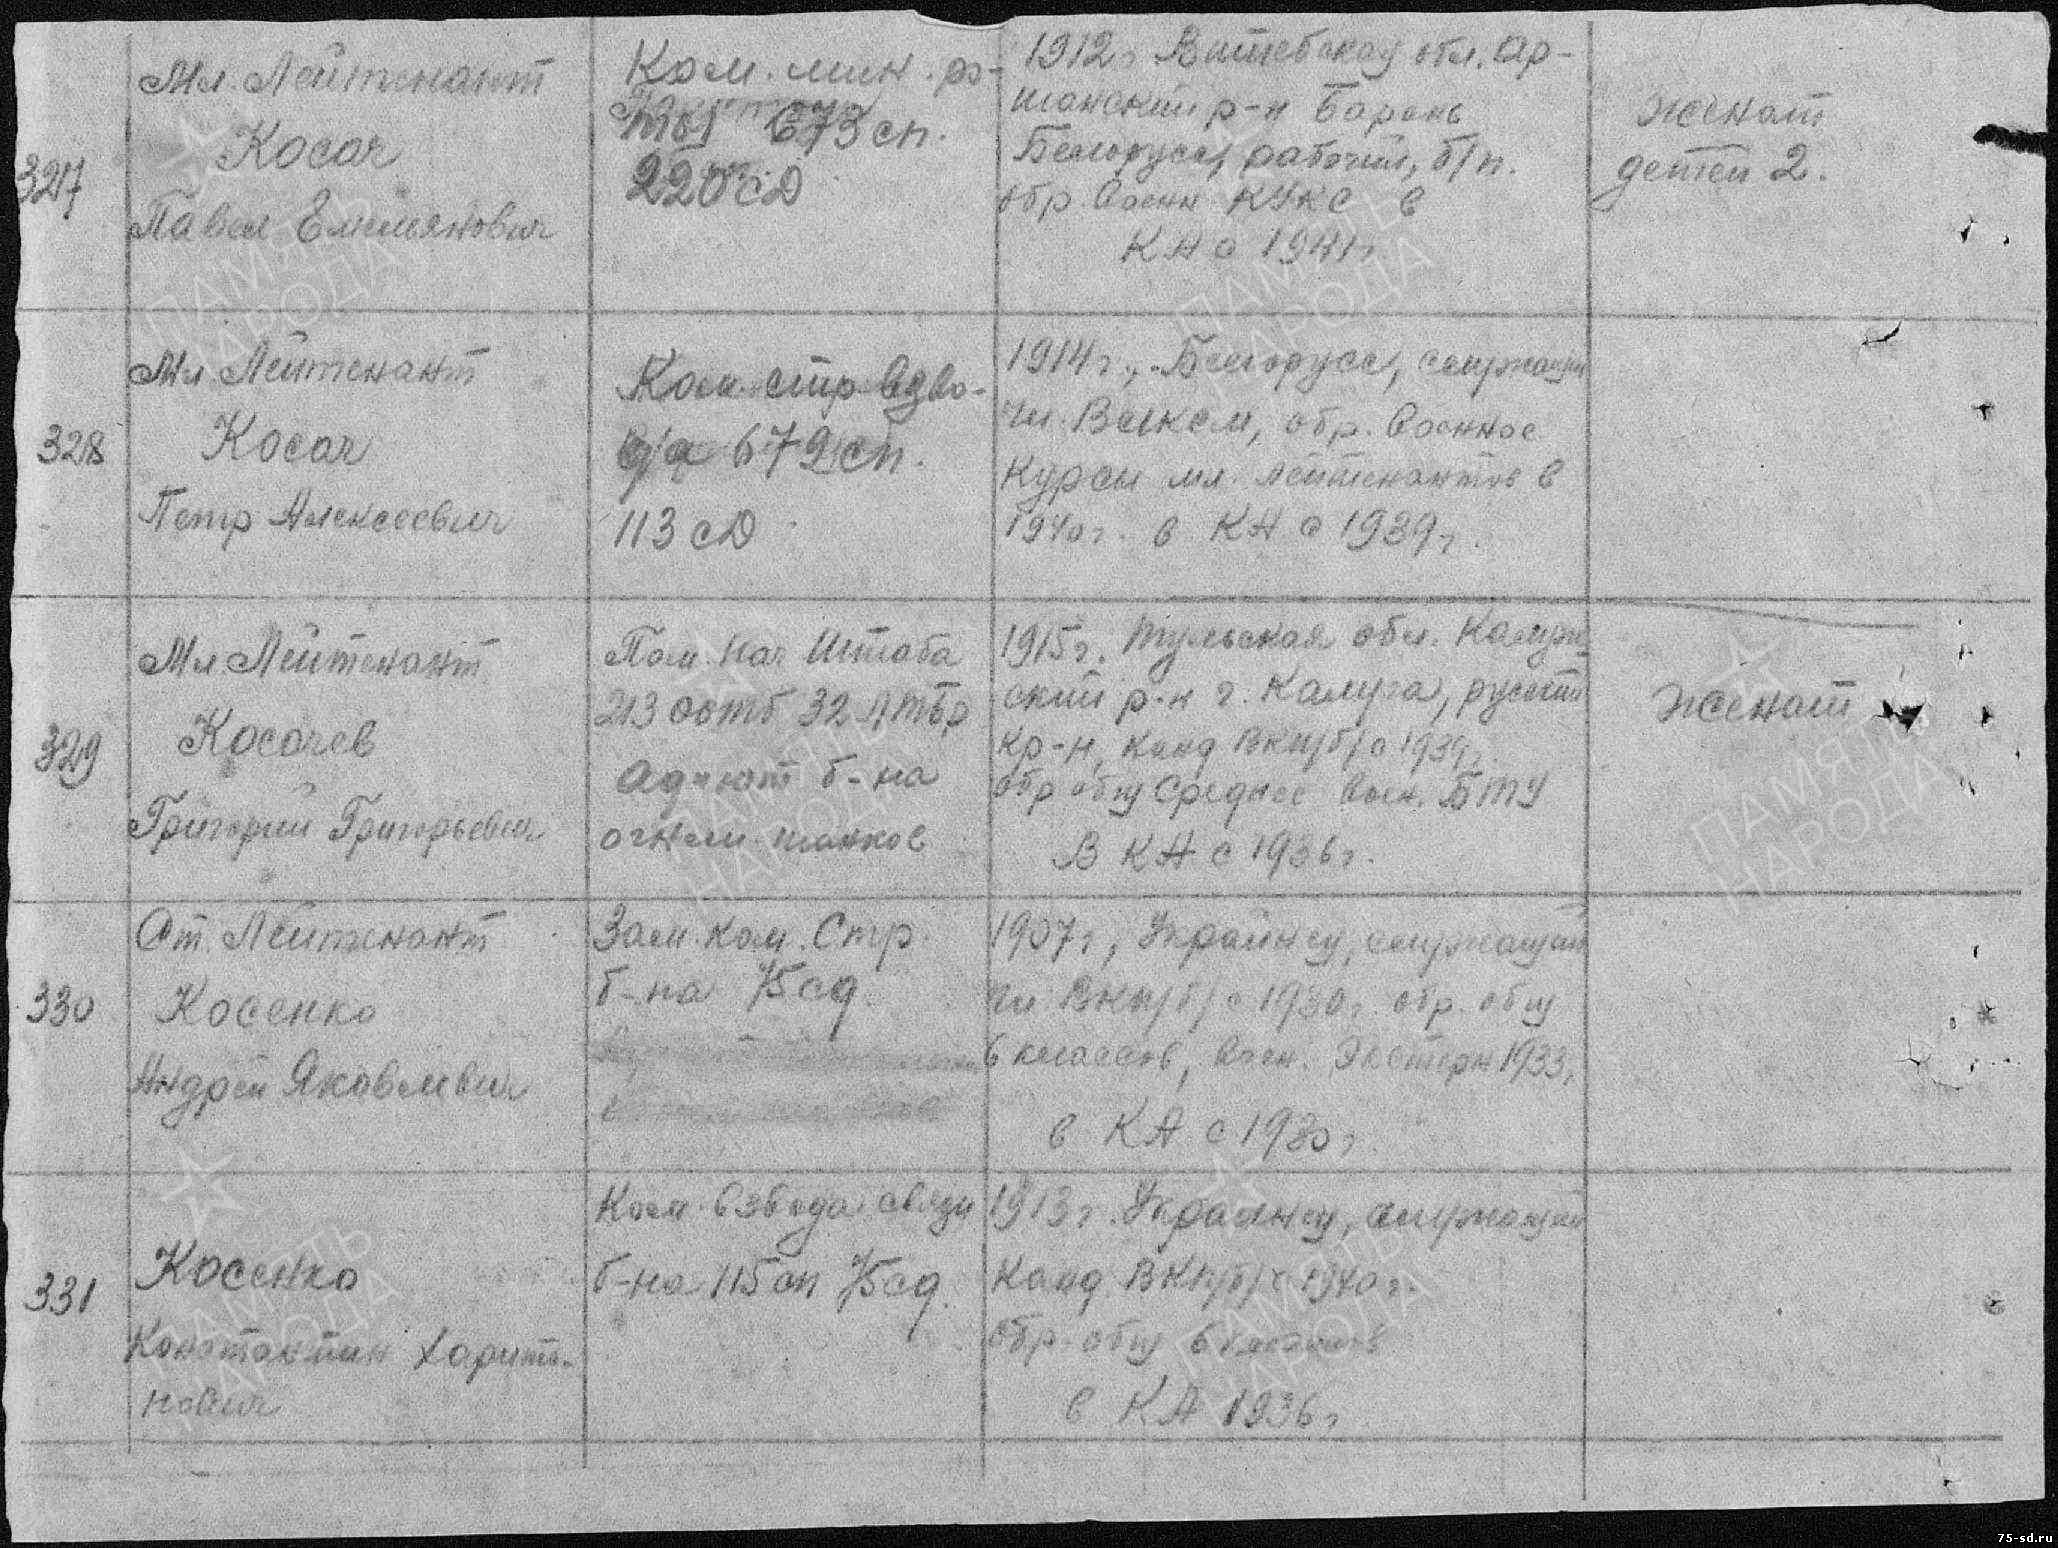 327
Мл. Лейтенант
Косач
Павел Емельянович
Ком. мин. ро-
ты 673 сп.
220 сд
1912г Витебская обл. Ор-
шанский р-н Барань
Белорусс, рабочий, б/п.
обр. военн КУКС в
КА с 1941г.
женат
детей 2.
328
Мл. Лейтенант
Косач
Петр Алексеевич
Ком. стр взво-
да 679 сп.
113 сд
1914г., Белорусс, служащий
чл. ВЛКСМ, обр. военное
курсы мл. лейтенантов в
1940г. в КА с 1939г.
329
Мл. Лейтенант
Косачев
Григорий Григорьевич
Пом. нач Штаба
213 32 ЛТБр
адъют б-на
огнем. танков
1915г. Тульская обл. Калуж-
ский р-н г. Калуга, русский
кр-н, канд ВКП/б/ с 1939г.
обр общ Среднее воен. БТУ
В КА с 1936г.
женат
330
Ст. Лейтенант
Косенко
Андрей Яковлевич
Зам. ком. Стр.
б-на 75 сд
1907г, Украинец, служащий
чл ВКП/б/ с 1930г. обр. общ
6 классов, воен. Экстерн 1933,
в КА с 1930г.
331
Косенко
Константин Харито-
нович
Ком. взвода связи
б-на 115 сп 75 сд.
1913г. Украинец, служащий
Канд ВКП/б/ с 1940г.
обр. общ 6 классов
в КА 1936г
ПАМЯТЬ
НАРОДА
75-sd.ru